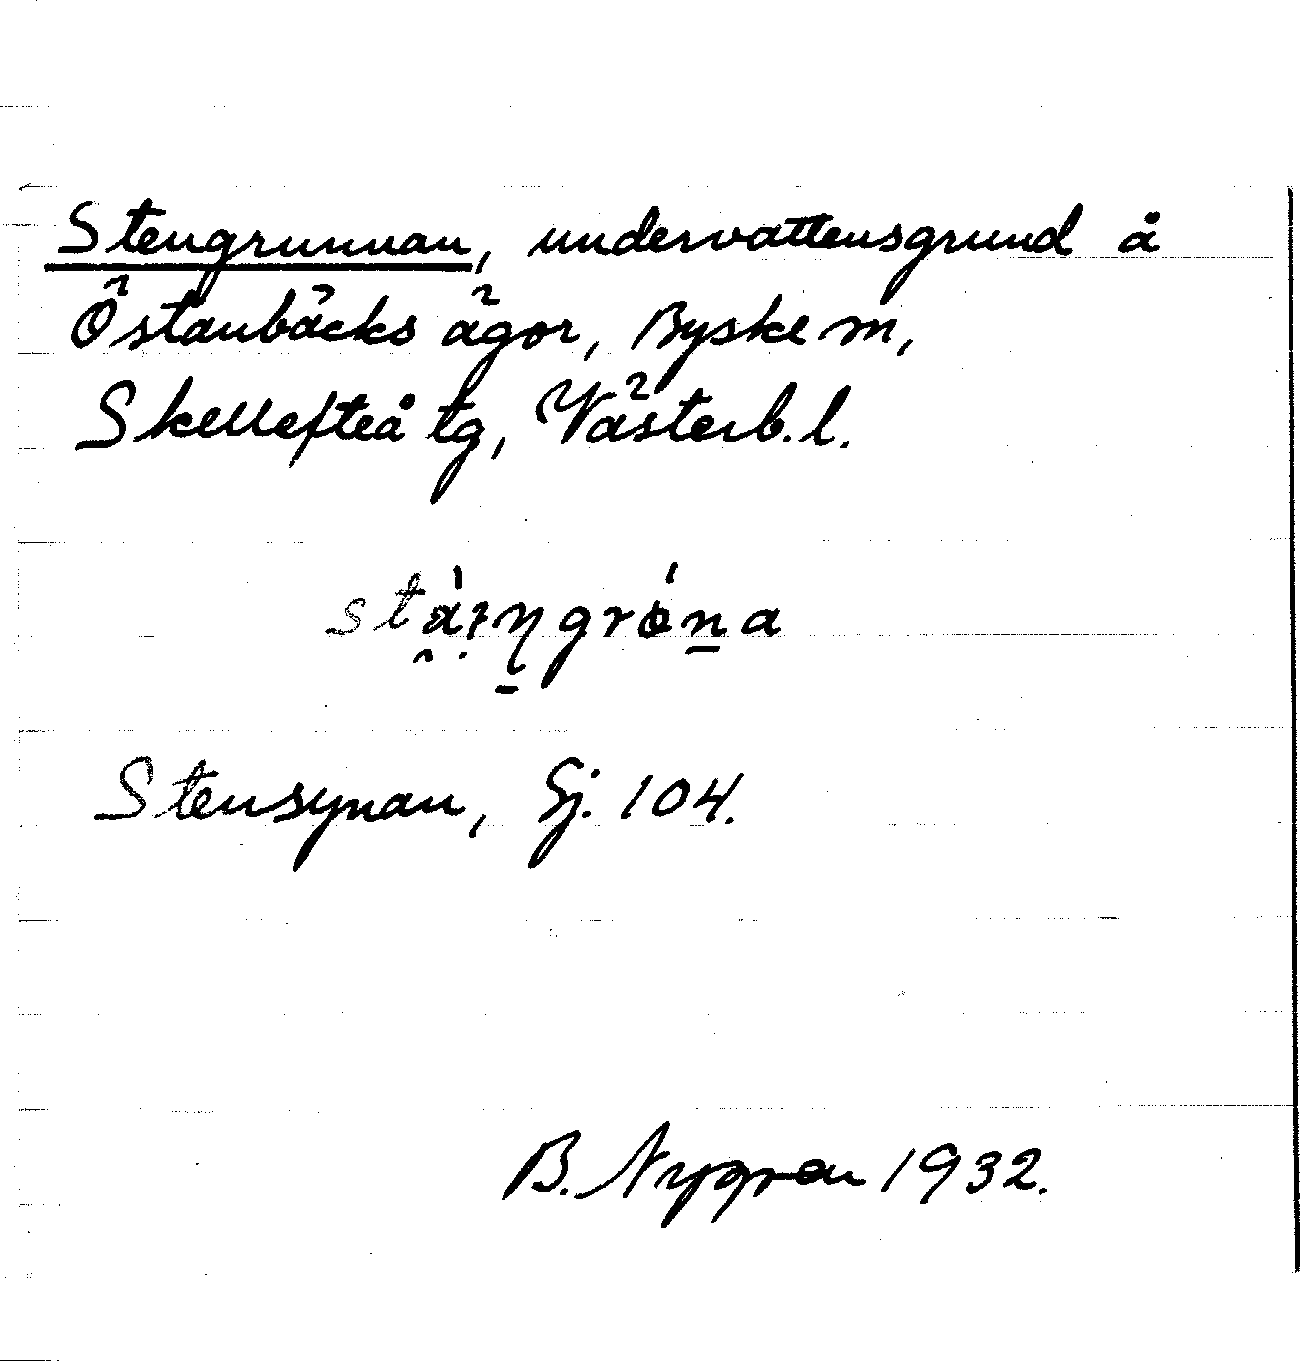 Stengrunnan, undervattensgrund å
Östanbäcks ägor, Byske sn,
Skellefteå tg, Västerb. l.
Stensynan, Sj. 104.
B. Nygren 1932.